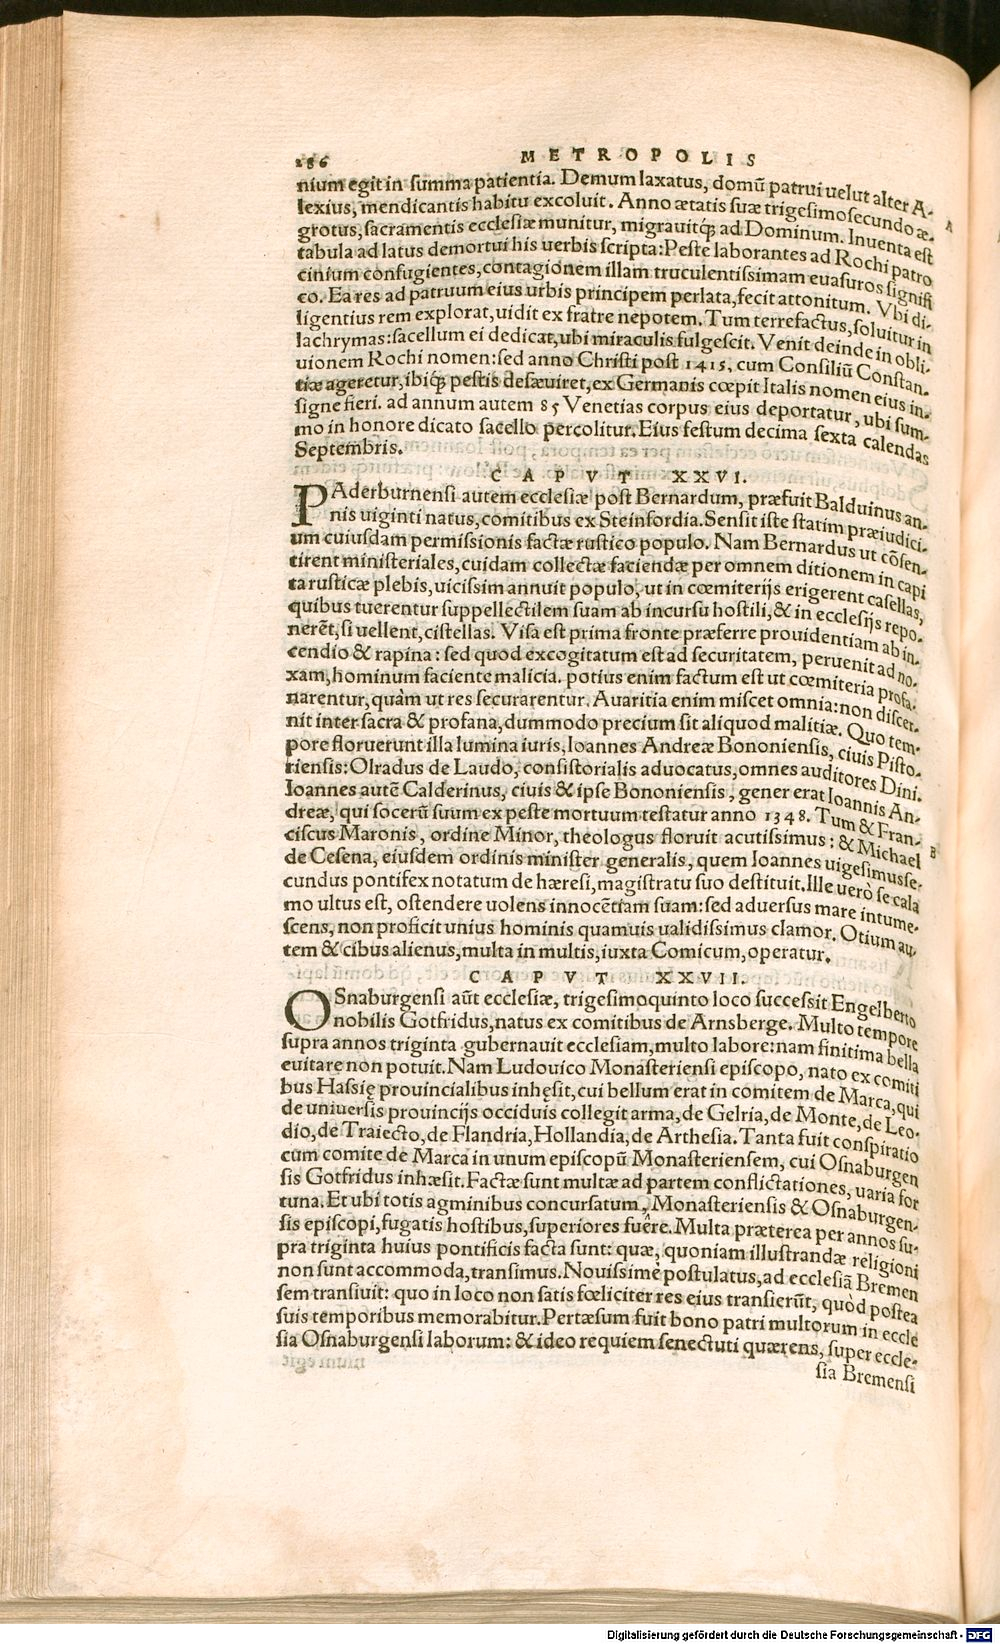 286 METROPOLIS
nium egit in summa patientia. Demum laxatus, domũ patrui uelut alter A-
lexius, mendicantis habitu excoluit. Anno ætatis suæ trigesimosecundo æ-
A
grotus, sacramentis ecclesiæ munitur, migrauitq́; ad Dominum. Inuenta est
tabula ad latus demortui his uerbis scripta: Peste laborantes ad Rochi patro
cinium confugientes, contagionem illam truculentissimam euasuros signifi
co. Ea res ad patruum eius urbis principem perlata, fecit attonitum. Vbi di-
ligentius rem explorat, uidit ex fratre nepotem. Tum terrefactus, soluitur in
lachrymas: sacellum ei dedicat, ubi miraculis fulgescit. Venit deinde in obli-
uionem Rochi nomen: sed anno Christi post 1415. cum Consiliũ Constan-
tiæ ageretur, ibiq́; pestis desæuiret, ex Germanis cœpit Italis nomen eius in-
signe fieri. ad annum autem 85 Venetias corpus eius deportatur, ubi sum-
mo in honore dicato sacello percolitur. Eius festum decima sexta calendas
Septembris.
CAPVT XXVI.
PAderburnensi autem ecclesiæ post Bernardum, præfuit Balduinus an-
nis uiginti natus, comitibus ex Steinfordia. Sensit iste statim præiudici-
um cuiusdam permissionis factæ rustico populo. Nam Bernardus ut cõsen-
tirent ministeriales, cuidam collectæ faciendæ per omnem ditionem in capi
ta rusticæ plebis, uicissim annuit populo, ut in cœmiterijs erigerent casellas,
quibus tuerentur suppellectilem suam ab incursu hostili, & in ecclesijs repo-
nerẽt, si uellent, cistellas. Visa est prima fronte præferre prouidentiam ab in-
cendio & rapina: sed quod excogitatum est ad securitatem, peruenit ad no-
xam, hominum faciente malicia. potius enim factum est ut cœmiteria profa-
narentur, quàm ut res securarentur. Auaritia enim miscet omnia: non discer-
nit inter sacra & profana, dummodo precium sit aliquod malitiæ. Quo tem-
pore floruerunt illa lumina iuris, Ioannes Andreæ Bononiensis, ciuis Pisto-
riensis: Olradus de Laudo, consistorialis aduocatus, omnes auditores Dini.
Ioannes autẽ Calderinus, ciuis & ipse Bononiensis, gener erat Ioannis An-
dreæ, qui socerũ suum ex peste mortuum testatur anno 1348. Tum & Fran-
ciscus Maronis, ordine Minor, theologus floruit acutissimus: & Michael
B
de Cesena, eiusdem ordinis minister generalis, quem Ioannes uigesimusse-
cundus pontifex notatum de hæresi, magistratu suo destituit. Ille uerò se cala
mo ultus est, ostendere uolens innocẽtiam suam: sed aduersus mare intume-
scens, non proficit unius hominis quamuis ualidissimus clamor. Otium au-
tem & cibus alienus, multa in multis, iuxta Comicum, operatur.
CAPVT XXVII.
OSnaburgensi aũt ecclesiæ, trigesimoquinto loco successit Engelberto
nobilis Gotfridus, natus ex comitibus de Arnsberge. Multo tempore
supra annos triginta gubernauit ecclesiam, multo labore: nam finitima bella
euitare non potuit. Nam Ludouico Monasteriensi episcopo, nato ex comiti
bus Hassię prouincialibus inhęsit, cui bellum erat in comitem de Marca, qui
de uniuersis prouincijs occiduis collegit arma, de Gelria, de Monte, de Leo-
dio, de Traiecto, de Flandria, Hollandia, de Arthesia. Tanta fuit conspiratio
cum comite de Marca in unum episcopũ Monasteriensem, cui Osnaburgen
sis Gotfridus inhæsit. Factæ sunt multæ ad partem conflictationes, uaria for
tuna. Et ubi totis agminibus concursatum, Monasteriensis & Osnaburgen-
sis episcopi, fugatis hostibus, superiores fuêre. Multa præterea per annos su-
pra triginta huius pontificis facta sunt: quæ, quoniam illustrandæ religioni
non sunt accommoda, transimus. Nouissimè postulatus, ad ecclesiã Bremen
sem transiuit: quo in loco non satis fœliciter res eius transierũt, quòd postea
suis temporibus memorabitur. Pertæsum fuit bono patri multorum in eccle
sia Osnaburgensi laborum: & ideo requiem senectuti quærens, super eccle-
sia Bremensi
Digitalisierung gefördert durch die Deutsche Forschungsgemeinschaft - DFG